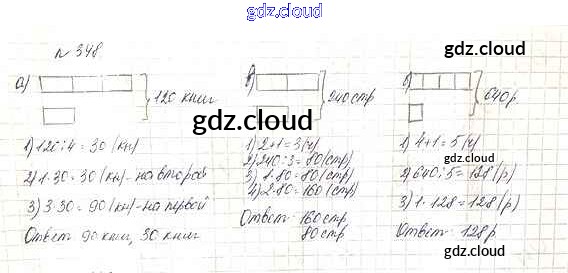 gdz.cloud
n 348
gdz.cloud
а)
120 книг
1) 120:4=30 (кн)
2) 1·30=30 (кн)-на второй
3) 3·30=90 (кн)-на первой
Ответ 90 книг, 30 книг
240 стр
1) 2+1=3 (ч)
2) 240:3=80 (стр)
3) 1·80=80 (стр)
4) 2·80=160 (стр)
Ответ 160 стр
80 стр
640 р.
1) 4+1=5 (ч)
2) 640:5=128 (р)
3) 1·128=128 (р)
Ответ 128 р
gdz.cloud
gdz.cloud
gdz.cloud
gdz.cloud
348